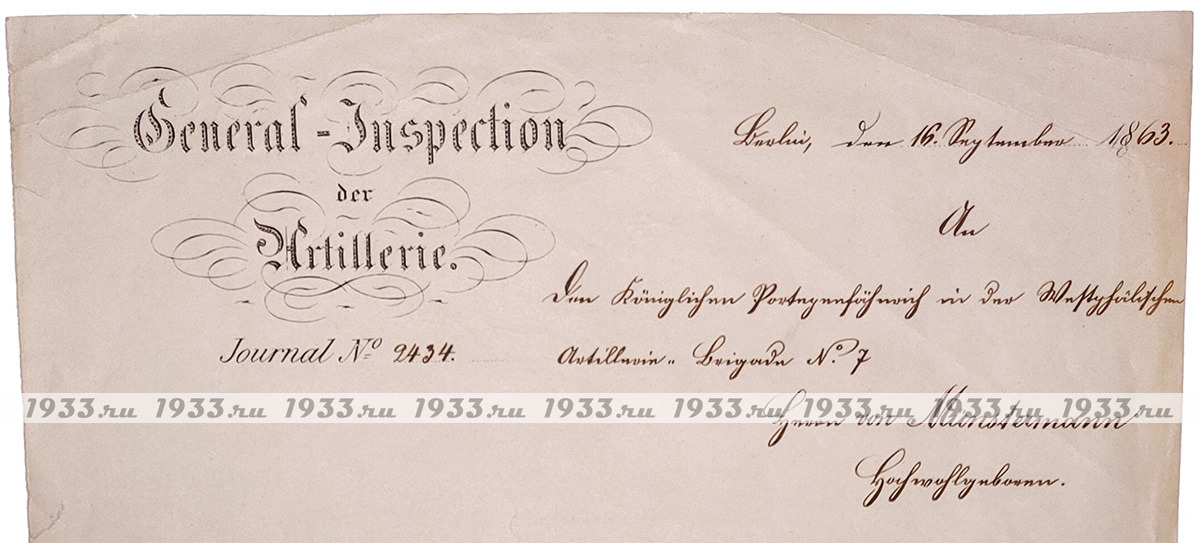 General-Inspection
der
Artillerie.
Journal No 2434.
Berlin, den 16. September 1863.
An
Den Königlichen Portepeefähnrich in der Westphälischen
Artillerie-Brigade No. 7
Herrn von Münstermann
Hochwohlgeboren.
1933.ru 1933.ru 1933.ru 1933.ru 1933.ru 1933.ru 1933.ru 1933.ru 1933.ru